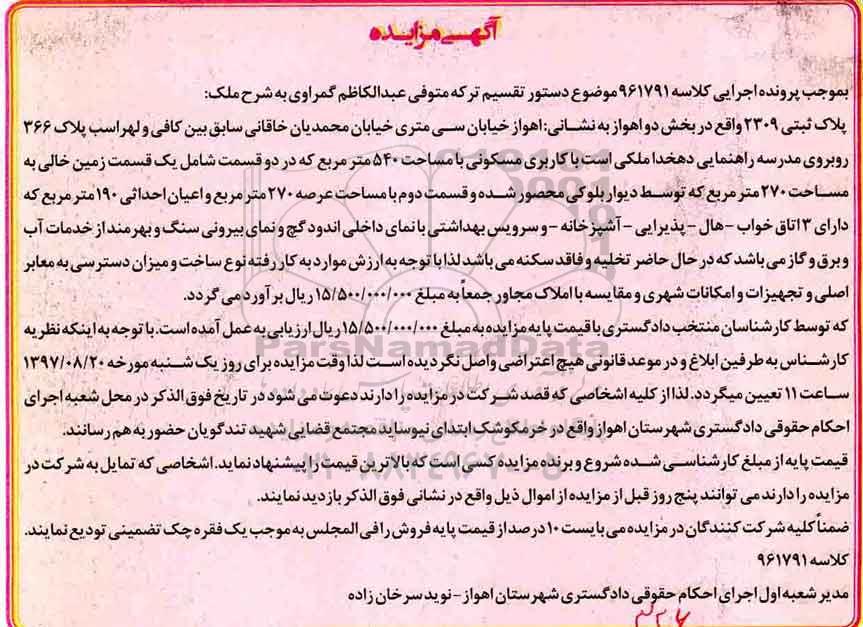 آگهی مزایده
بموجب پرونده اجرایی کلاسه ۹۶۱۷۹۱ موضوع دستور تقسیم ترکه متوفی عبدالکاظم گمراوی به شرح ملک:
پلاک ثبتی ۲۳۰۹ واقع در بخش دو اهواز به نشانی: اهواز خیابان سی متری خیابان محمدیان خاقانی سابق بین کافی و لهراسب پلاک ۳۶۶
روبروی مدرسه راهنمایی دهخدا ملکی است با کاربری مسکونی با مساحت ۵۴۰ متر مربع که در دو قسمت شامل یک قسمت زمین خالی به
مساحت ۲۷۰ متر مربع که توسط دیوار بلوکی محصور شده و قسمت دوم با مساحت عرصه ۲۷۰ متر مربع و اعیان احداثی ۱۹۰ متر مربع که
دارای ۳ اتاق خواب - هال - پذیرایی - آشپزخانه - و سرویس بهداشتی با نمای داخلی اندود گچ و نمای بیرونی سنگ و بهرمند از خدمات آب
و برق و گاز می باشد که در حال حاضر تخلیه و فاقد سکنه می باشد لذا با توجه به ارزش موارد به کار رفته نوع ساخت و میزان دسترسی به معابر
اصلی و تجهیزات و امکانات شهری و مقایسه با املاک مجاور جمعاً به مبلغ ۱۵/۵۰۰/۰۰۰/۰۰۰ ریال بر آورد می گردد.
که توسط کارشناسان منتخب دادگستری با قیمت پایه مزایده به مبلغ ۱۵/۵۰۰/۰۰۰/۰۰۰ ریال ارزیابی به عمل آمده است. با توجه به اینکه نظریه
کارشناس به طرفین ابلاغ و در موعد قانونی هیچ اعتراضی واصل نگردیده است لذا وقت مزایده برای روز یک شنبه مورخه ۱۳۹۷/۰۸/۲۰
ساعت ۱۱ تعیین میگردد. لذا از کلیه اشخاصی که قصد شرکت در مزایده را دارند دعوت می شود در تاریخ فوق الذکر در محل شعبه اجرای
احکام حقوقی دادگستری شهرستان اهواز واقع در خرمکوشک ابتدای نیوساید مجتمع قضایی شهید تندگویان حضور به هم رسانند.
قیمت پایه از مبلغ کارشناسی شده شروع و برنده مزایده کسی است که بالاترین قیمت را پیشنهاد نماید. اشخاصی که تمایل به شرکت در
مزایده را دارند می توانند پنج روز قبل از مزایده از اموال ذیل واقع در نشانی فوق الذکر بازدید نمایند.
ضمناً کلیه شرکت کنندگان در مزایده می بایست ۱۰ درصد از قیمت پایه فروش را فی المجلس به موجب یک فقره چک تضمینی تودیع نمایند.
کلاسه ۹۶۱۷۹۱
مدیر شعبه اول اجرای احکام حقوقی دادگستری شهرستان اهواز - نوید سرخان زاده
ParsNamadData